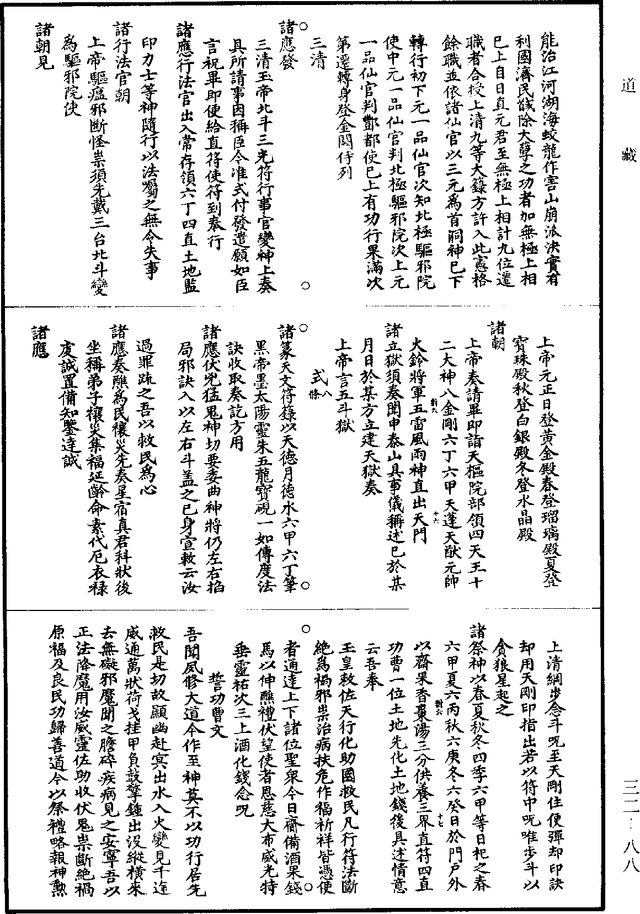 道藏
能治江河湖海蛟龍作害山崩派決實有
利國濟民餞除大孽之功者加無極上相
已上自日直元君至無極上相計九位遷
職者合授上清九等大籙方許入此憲格
餘職並依諸仙官以三元為首嗣神已下
轉行初下元一品仙官次知北極驅邪院
使中元一品仙官判北極驅邪院次上元
一品仙官判酆都使已上有功行果滿次
第遷轉身登金闕侍列
三清
諸應發
三清玉帝北斗三光符行事官變神上奏
具所請事因稱臣今准式付發遣願如臣
言祝畢即便給直符使符到奉行
諸應行法官出入常存領六丁四直土地監
印力士等神隨行以法囑之無令失事
諸行法官朝
上帝驅瘟邪斷怪祟須先戴三台北斗變
為驅邪院使
諸朝見
上帝元正日登黃金殿春登瑠璃殿夏登
寶珠殿秋登白銀殿冬登水晶殿
諸朝
上帝奏請畢即請天樞院部領四天王十
二大神八金剛六丁六甲天蓬天猷元帥
火鈴將軍五雷風雨神直出天門
諸立獄須奏聞申泰山具事儀稱述已於某
月日於某方立建天獄奏
上帝言五斗獄
式八條
諸篆天文符籙以天德月德水六甲六丁筆
黑帝墨太陽靈朱五龍寶硯一如傳度法
訣收取奏訖方用
諸應伏兇猛鬼神切要委曲神將仍左右掐
局邪訣入以左右斗蓋之已身宣敕云汝
過罪疏之吾以救民為心
諸應奏醮為民禳災先奏星宿真君科狀後
坐稱弟子禳災集福延齡命素代厄衣祿
虔誠置備知鑒達誠
諸應
上清綱步念斗呪至天剛住便彈却印訣
却用天剛印指出若以符中呪唯步斗以
貪狼星起之
諸祭神以春夏秋冬四季六甲等日祀之春
六甲夏六丙秋六庚冬六癸日於門戶外
以齋果香棗湯三分供養三界直符四直
功曹一位土地先化土地錢後具述情意
云吾奉
玉皇敕佐天行化助國救民凡行符法斷
絕為禍邪祟治病扶危作福祈祥皆憑使
者通達上下諸位聖眾今日齋備酒果錢
馬以伸醮禮伏望使者恩慈大布威光特
垂靈祐次三上酒化錢念呪
誓功曹文
吾聞夙修大道今作至神莫不以功行居先
救民是切故顯幽赴冥出水入火變見千途
威通萬狀荷戈挂甲負鼓擎鍾出沒縱橫來
去無礙邪魔聞之膽碎疾病見之安寧吾以
正法降魔用汝威靈佐助收伏鬼祟斷絕禍
原福及良民功歸善道今以祭禮略報神勲
三二－八八